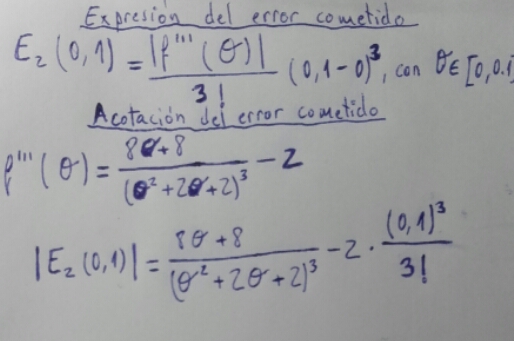 Expresión del error cometido
E₂(0,1) = |f'''(θ)| / 3! (0,1-0)³, con θ∈[0,0.1]
Acotación del error cometido
f'''(θ) = 8θ+8 / (θ²+2θ+2)³ - 2
|E₂(0,1)| = 8θ+8 / (θ²+2θ+2)³ - 2 · (0,1)³ / 3!